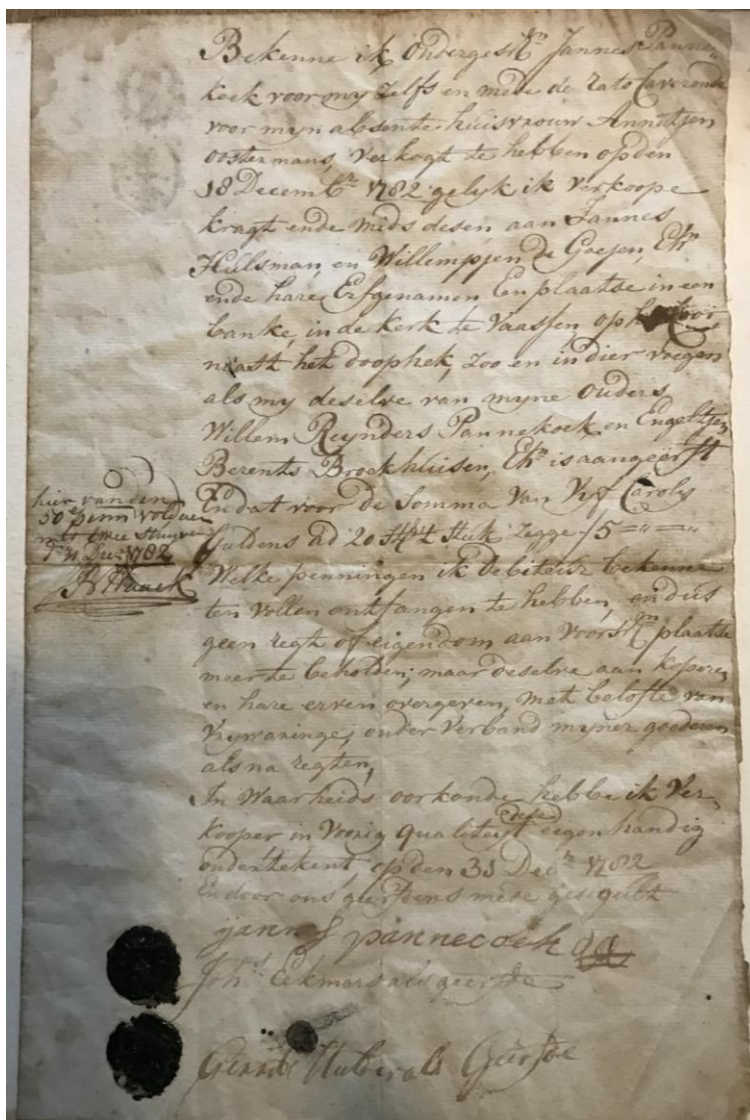 Bekenne ik Ondergesch:n Jannes Panne-
koek voor my zelfs en mede de Rato Caverende
voor myn absente huisvrouw Annetjen
Oostermans, Verkogt te hebben op den
18 Decemb:r 1782 gelyk ik Verkoope
kragt ende mids desen, aan Jannes
Hulsman, en Willempjen de Goejen, Eh:n
ende hare Erfgenamen Een plaatse in een
banke, in de kerk te Vaassen, op
naast het doophek, zoo en in dier voegen
als my deselve van myne Ouders
Willem Reynders Pannekoek en Engeltjen
Berents Broekhuisen, Eh:n is aangeërft
En dat voor de Somma Van Vyf Caroly
Guldens ad 20 St: 't stuk Zegge f 5 =,,=,,
hier van den
50 penn: voldaen
met twee stuyver
31 Dec: 1782
Welke penningen ik Debiteur bekenne
ten vollen ontfangen te hebben, en dus
geen regt of eigendom aan voorsch:n plaatse
meer te beholden; maar deselve aan kopere
en hare erven overgeven, met belofte van
Vrywaringe, onder Verband myner goederen
als na regten,
In Waarheids oorkonde hebbe ik Ver-
kooper in Vorig qualiteyt dese eigenhandig
ondertekent, op den 31 Dec:r 1782
En door ons geerfdens mede gesegelt
yannes pannecoek
Joh:s Eekmars als geerfde
Gerrit als Geerfde